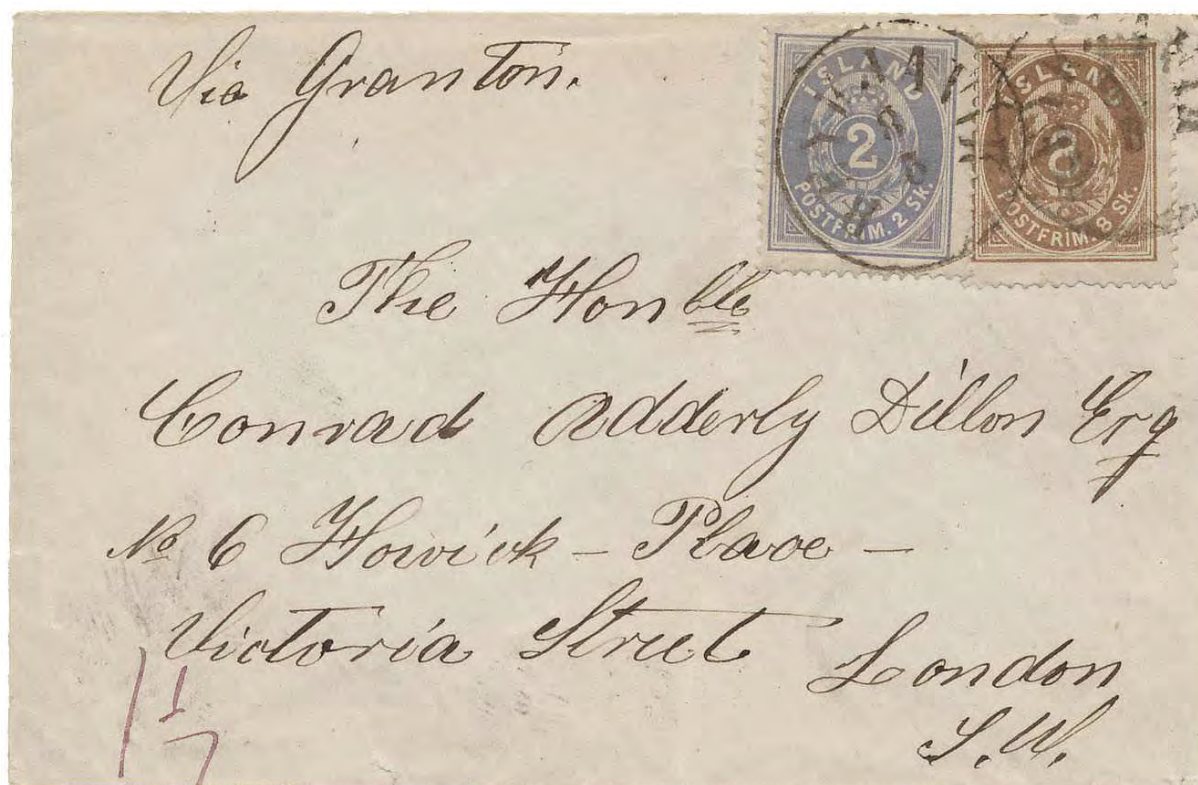 Via Granton.
ISLAND
2
POSTFRIM. 2 SK.
ISLAND
8
POSTFRIM. 8 SK.
REYKJAVIK
8
5
The Honble
Conrad Adderly Dillon Esq
No 6 Howick – Place –
Victoria Street London
S.W.
1
7